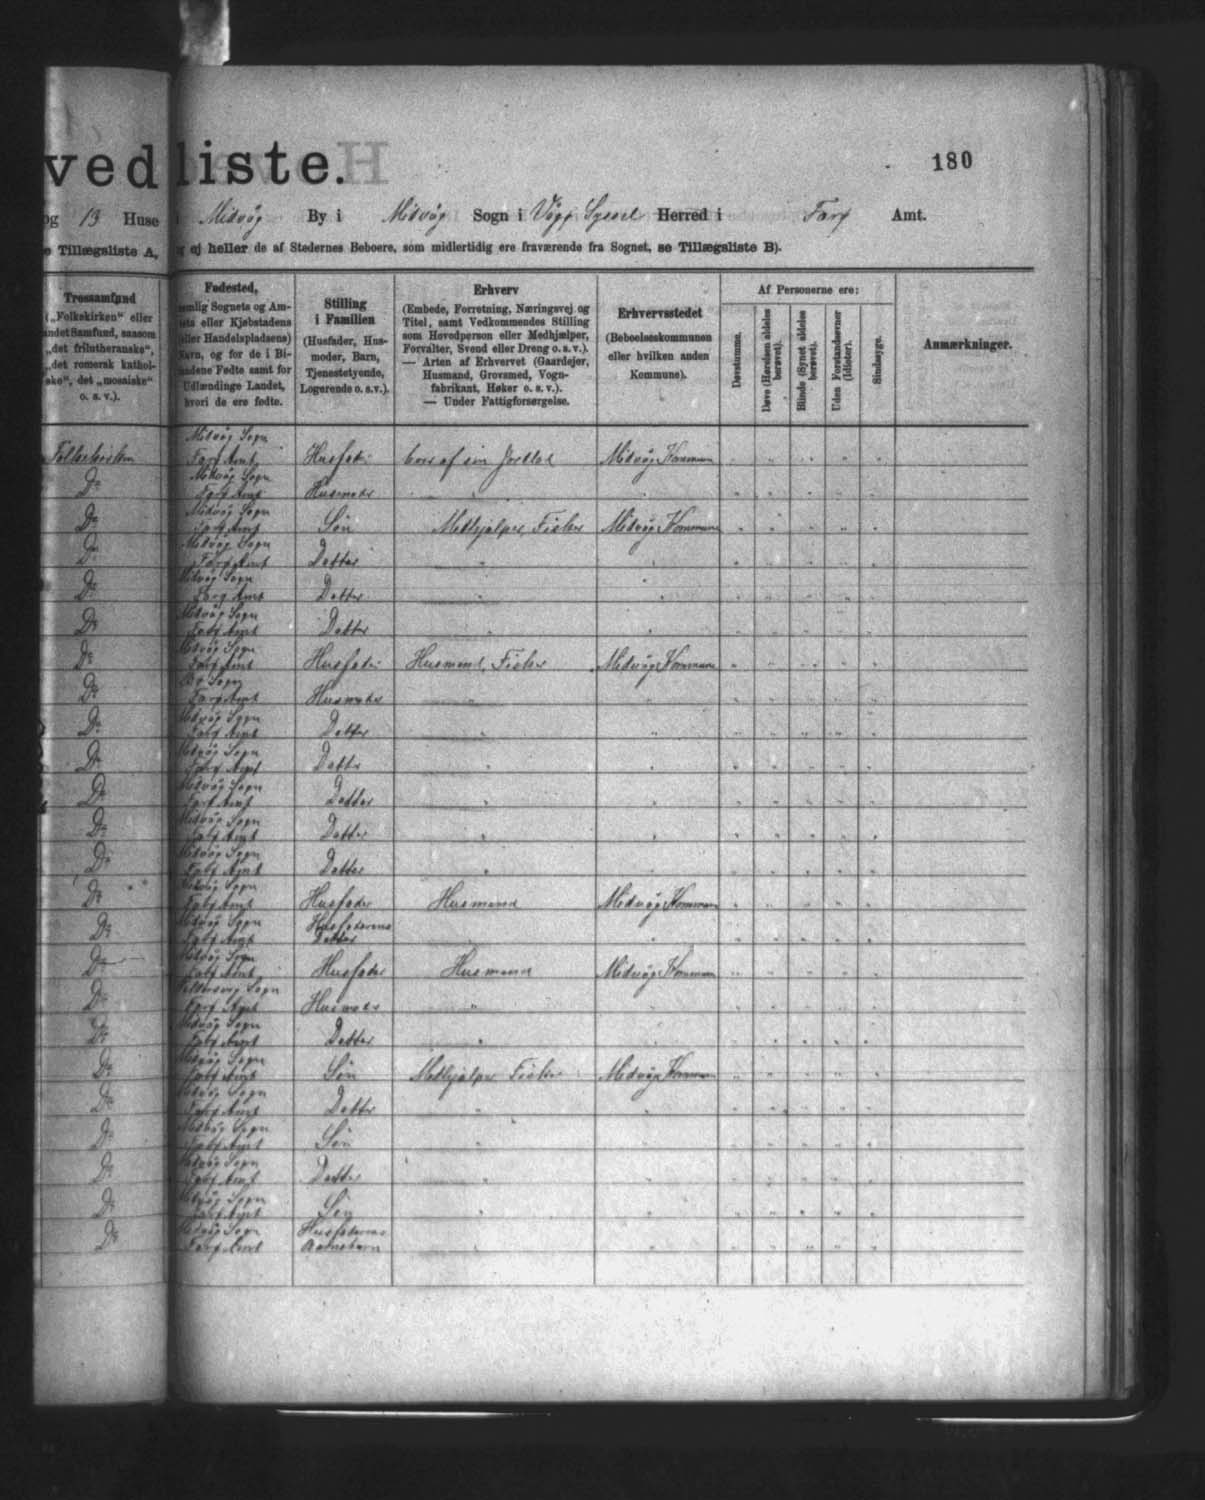 vedliste.
180
og 13 Huse i Midvåg By i Midvåg Sogn i Vågø Syssel Herred i Farø Amt.
e Tillægsliste A, ej heller de af Stedernes Beboere, som midlertidig ere fraværende fra Sognet, se Tillægsliste B).
Trossamfund
(„Folkekirken“ eller
andet Samfund, saasom
„det frilutheranske“,
„det romersk kathol-
ske“, det „mosaiske“
o. s. v.).
Fødested,
nemlig Sognets og Am-
tets eller Kjøbstadens
(eller Handelspladsens)
Navn, og for de i Bi-
landene Fødte samt for
Udlændinge Landet,
hvori de ere fødte.
Stilling
i Familien
(Husfader, Hus-
moder, Barn,
Tjenestetyende,
Logerende o. s. v.).
Erhverv
(Embede, Forretning, Næringsvej og
Titel, samt Vedkommendes Stilling
som Hovedperson eller Medhjælper,
Forvalter, Svend eller Dreng o. s. v.).
— Arten af Erhvervet (Gaardejer,
Husmand, Grovsmed, Vogn-
fabrikant, Høker o. s. v.).
— Under Fattigforsørgelse.
Erhvervsstedet
(Beboelseskommunen
eller hvilken anden
Kommune).
Af Personerne ere:
Døvstumme.
Døve (Hørelsen aldeles
berøvet).
Blinde (Synet aldeles
berøvet).
Uden Forstandsevner
(Idioter).
Sindssyge.
Anmærkninger.
Folkekirken Midvåg Sogn
Farø Amt Husfader af sin Jordlod Midvåg Kommune
Do Midvåg Sogn
Farø Amt Husmoder
Do Midvåg Sogn
Farø Amt Søn Medhjælper, Fisker Midvåg Kommune
Do Midvåg Sogn
Farø Amt Datter
Do Midvåg Sogn
Farø Amt Datter
Do Midvåg Sogn
Farø Amt Datter
Do Midvåg Sogn
Farø Amt Husfader Husmand, Fisker Midvåg Kommune
Do Bø Sogn
Farø Amt Husmoder
Do Midvåg Sogn
Farø Amt Datter
Do Midvåg Sogn
Farø Amt Datter
Do Midvåg Sogn
Farø Amt Datter
Do Midvåg Sogn
Farø Amt Datter
Do Midvåg Sogn
Farø Amt Datter
Do Midvåg Sogn
Farø Amt Husfader Husmand Midvåg Kommune
Do Midvåg Sogn
Farø Amt Husfaderens
Datter
Do Midvåg Sogn
Farø Amt Husfader Husmand Midvåg Kommune
Do Sogn
Farø Amt Husmoder
Do Midvåg Sogn
Farø Amt Datter
Do Midvåg Sogn
Farø Amt Søn Medhjælper Fisker Midvåg Kommune
Do Midvåg Sogn
Farø Amt Datter
Do Midvåg Sogn
Farø Amt Søn
Do Midvåg Sogn
Farø Amt Datter
Do Midvåg Sogn
Farø Amt Søn
Do Midvåg Sogn
Farø Amt Husfaderens
Barnebarn